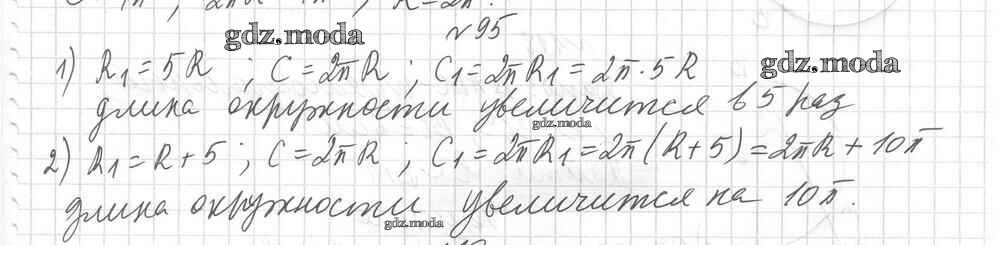 №95
gdz.moda
1) R₁ = 5R ; C = 2πR ; C₁ = 2πR₁ = 2π·5R
gdz.moda
длина окружности увеличится в 5 раз
gdz.moda
2) R₁ = R + 5 ; C = 2πR ; C₁ = 2πR₁ = 2π(R + 5) = 2πR + 10π
длина окружности увеличится на 10π.
gdz.moda